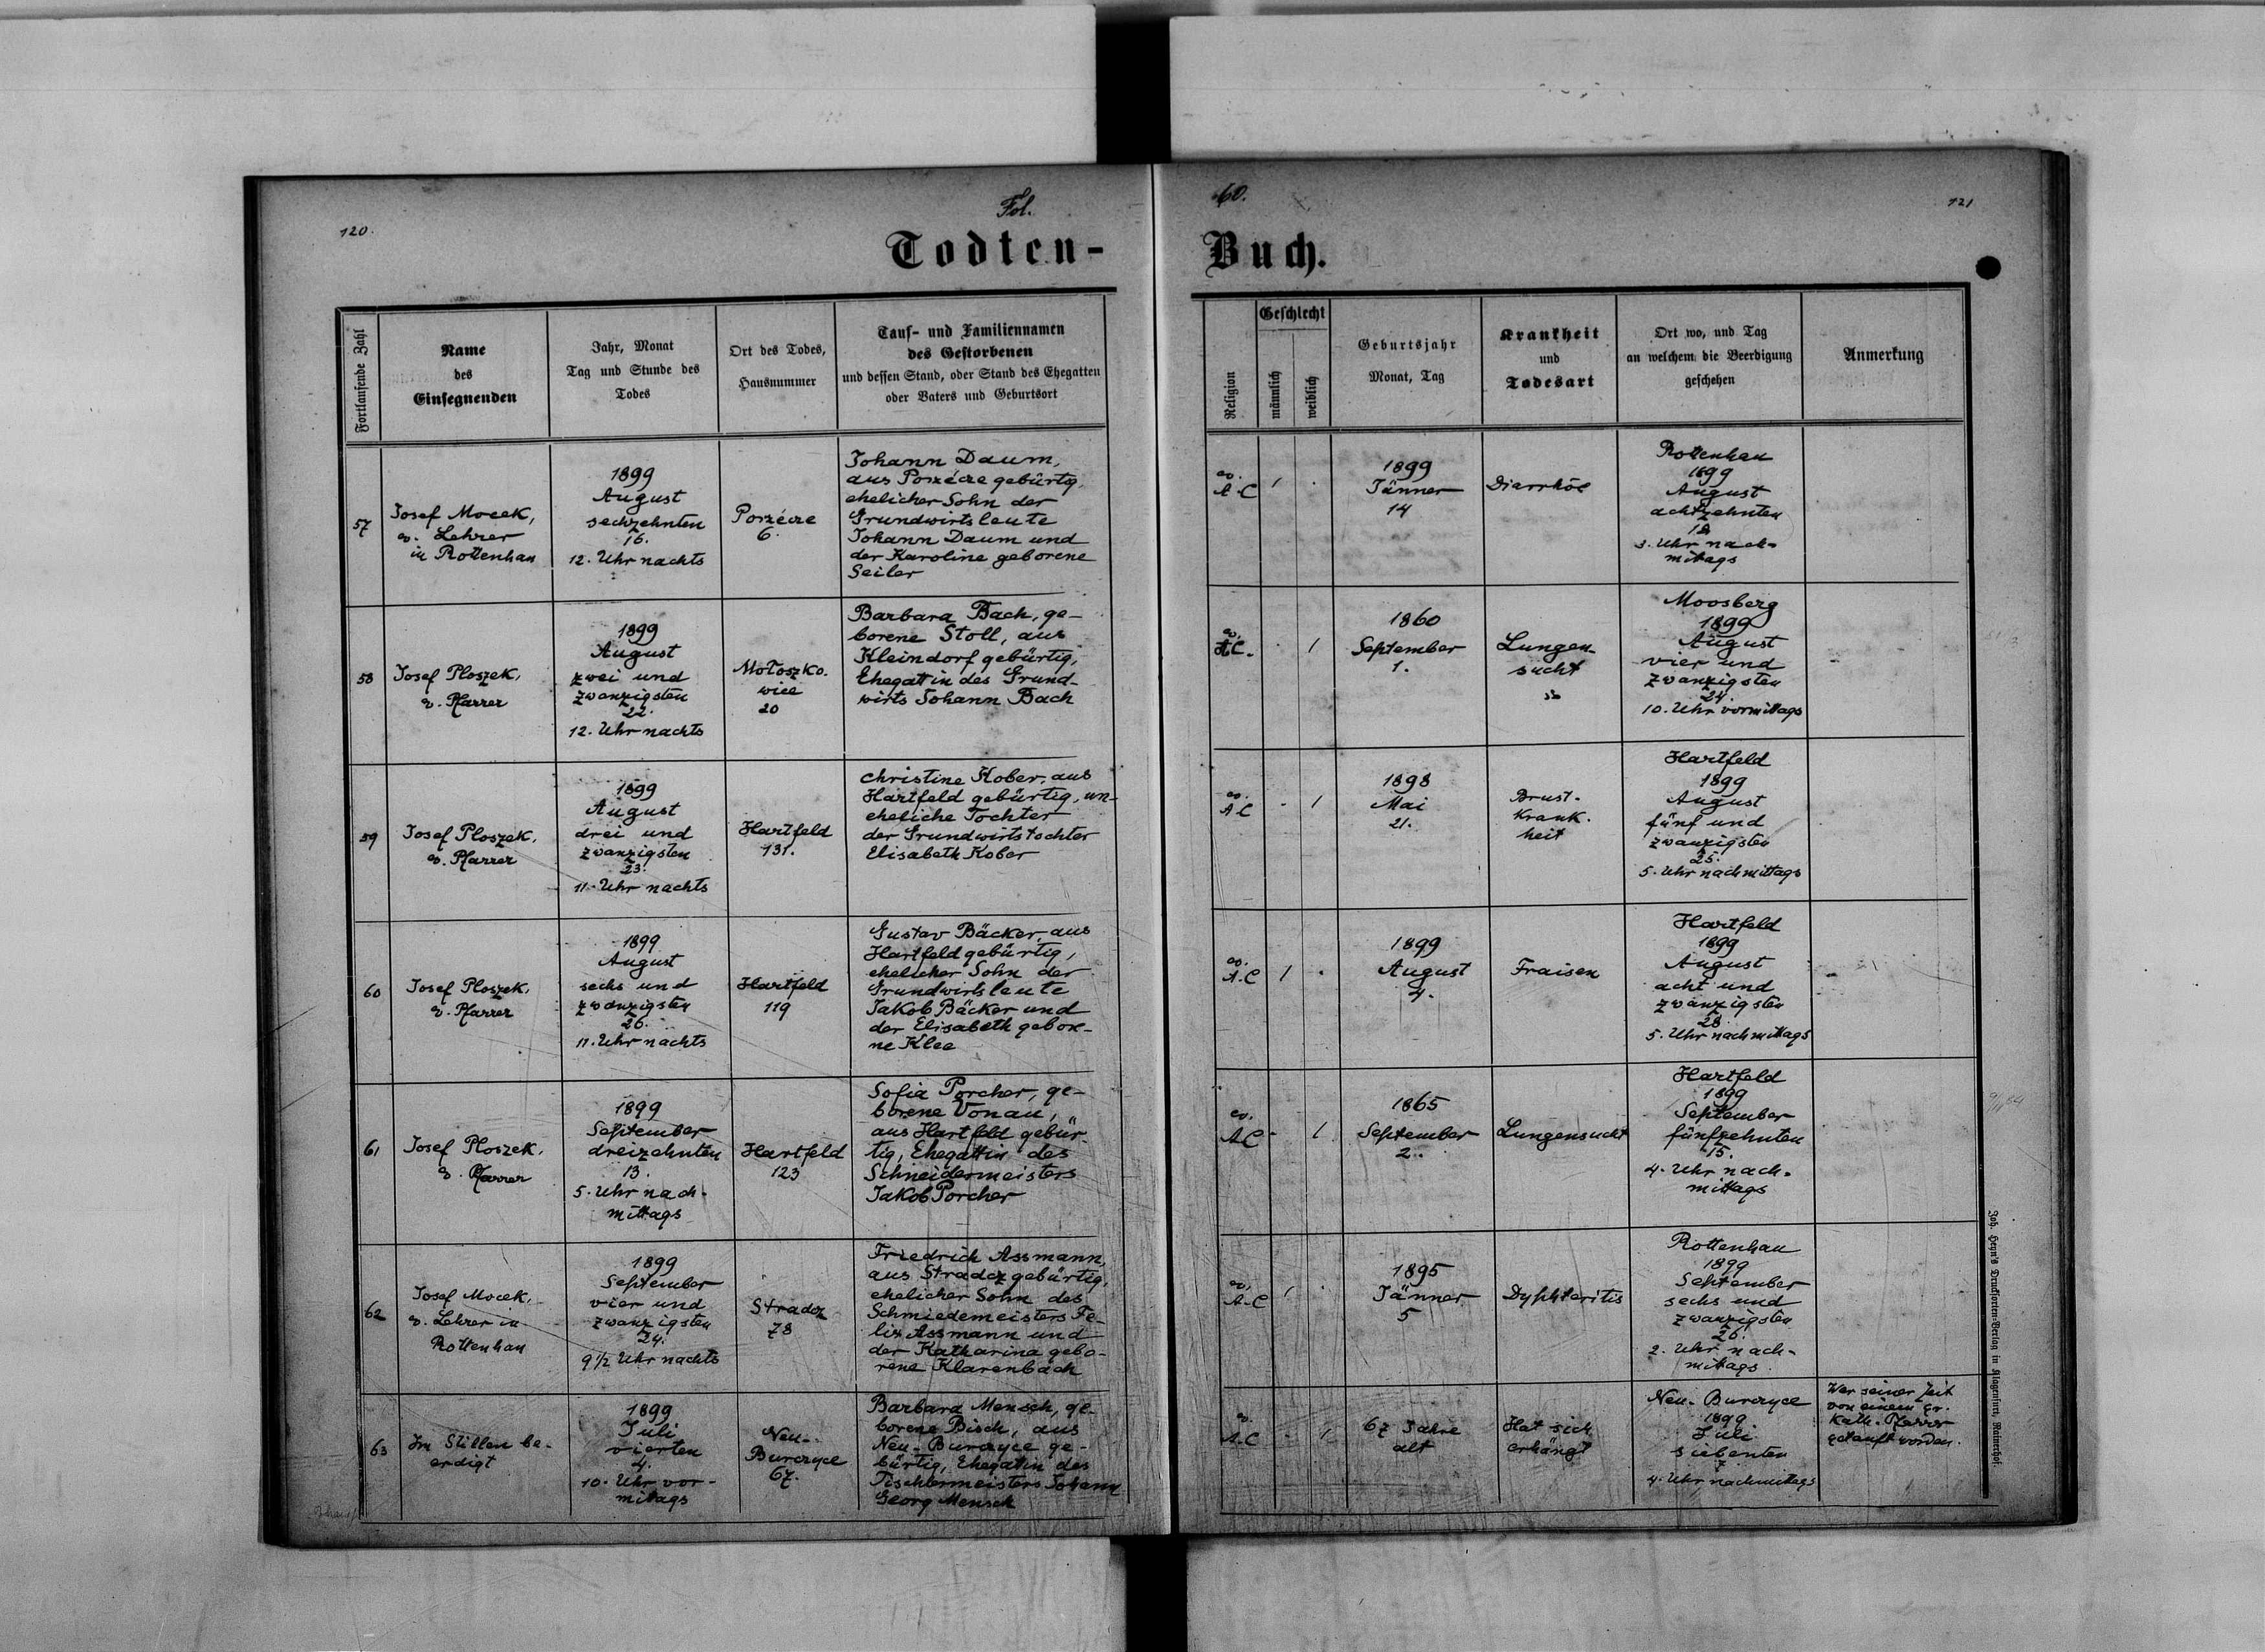 120.
Fol.
Todten-
Fortlaufende Zahl
Name
des
Einsegnenden
Jahr, Monat
Tag und Stunde des
Todes
Ort des Todes,
Hausnummer
Tauf- und Familiennamen
des Gestorbenen
und dessen Stand, oder Stand des Ehegatten
oder Vaters und Geburtsort
57
Josef Mocek,
ev. Lehrer
in Rottenhan
1899
August
sechzehnten
16.
12. Uhr nachts
Porzécze
6.
Johann Daum,
aus Porzécze gebürtig,
ehelicher Sohn der
Grundwirtsleute
Johann Daum und
der Karoline geborene
Seiler
58
Josef Ploszek,
ev. Pfarrer
1899
August
zwei und
zwanzigsten
22.
12. Uhr nachts
Mołoszko-
wice
20
Barbara Bach, ge-
borene Stoll, aus
Kleindorf gebürtig,
Ehegattin des Grund-
wirts Johann Bach
59
Josef Ploszek,
ev. Pfarrer
1899
August
drei und
zwanzigsten
23.
11. Uhr nachts
Hartfeld
131.
Christine Kober, aus
Hartfeld gebürtig, un-
eheliche Tochter
der Grundwirtstochter
Elisabeth Kober
60
Josef Ploszek,
ev. Pfarrer
1899
August
sechs und
zwanzigsten
26.
11. Uhr nachts
Hartfeld
119
Gustav Bäcker, aus
Hartfeld gebürtig,
ehelicher Sohn der
Grundwirtsleute
Jakob Bäcker und
der Elisabeth gebore-
ne Klee
61
Josef Ploszek,
ev. Pfarrer
1899
September
dreizehnten
13.
5. Uhr nach-
mittags
Hartfeld
123
Sofia Porcher, ge-
borene Vonau,
aus Hartfeld gebür-
tig, Ehegattin des
Schneidermeisters
Jakob Porcher
62
Josef Mocek,
ev. Lehrer in
Rottenhan
1899
September
vier und
zwanzigsten
24.
9 1/2 Uhr nachts
Stradcz
78
Friedrich Assmann,
aus Stradcz gebürtig,
ehelicher Sohn des
Schmiedemeisters Fe-
lix Assmann und
der Katharina gebo-
rene Klarenbach
63
Im Stillen be-
erdigt
1899
Juli
vierten
4.
10. Uhr vor-
mittags
Neu-
Burczyce
67.
Barbara Mensch, ge-
borene Bisch, aus
Neu-Burczyce ge-
bürtig, Ehegattin des
Tischlermeisters Johann
Georg Mensch
60.
121
Buch.
Religion
Geschlecht
männlich
weiblich
Geburtsjahr
Monat, Tag
Krankheit
und
Todesart
Ort wo, und Tag
an welchem die Beerdigung
geschehen
Anmerkung
ev.
A.C
1
.
1899
Jänner
14
Diarrhöe
Rottenhan
1899
August
achtzehnten
18
3. Uhr nach-
mittags
ev.
A.C.
.
1
1860
September
1.
Lungen-
sucht
Moosberg
1899
August
vier und
zwanzigsten
24.
10. Uhr vormittags
ev.
A.C
.
1
1898
Mai
21.
Brust-
Krank-
heit
Hartfeld
1899
August
fünf und
zwanzigsten
25.
5. Uhr nachmittags
ev.
A.C
1
.
1899
August
4.
Fraisen
Hartfeld
1899
August
acht und
zwanzigsten
28
5. Uhr nachmittags
ev.
A.C
.
1
1865
September
2.
Lungensucht
Hartfeld
1899
September
fünfzehnten
15.
4. Uhr nach-
mittags
ev.
A.C
1
.
1895
Jänner
5
Dyphteritis
Rottenhan
1899
September
sechs und
zwanzigsten
26.
2. Uhr nach-
mittags
ev.
A.C
.
1
67 Jahre
alt
Hat sich
erhängt
Neu-Burczyce
1899
Juli
siebenten
7
4. Uhr nachmittags
War seiner Zeit
von einem gr.
kath. Pfarrer
getauft worden.
Joh. Heyn's Drucksorten-Verlag in Klagenfurt, Rainerhof.